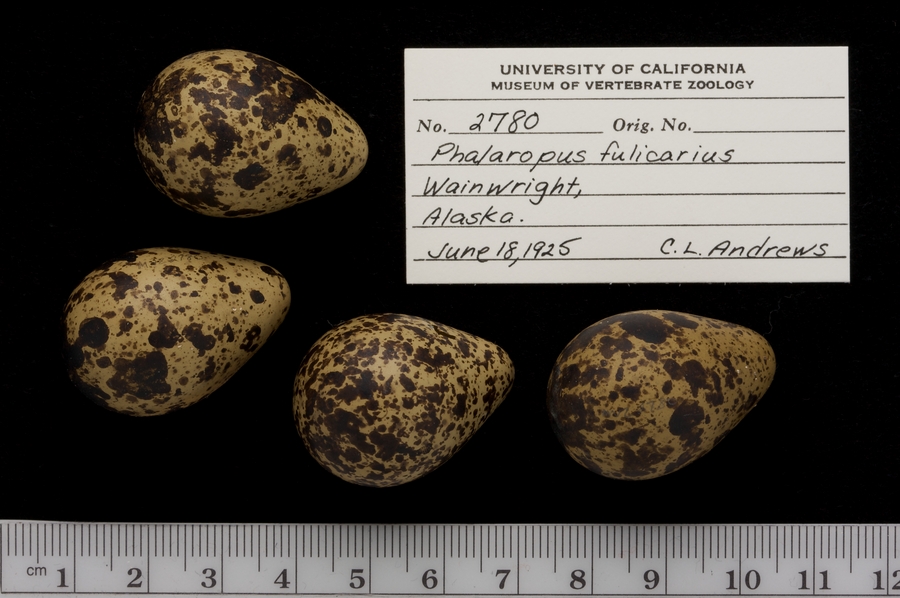 UNIVERSITY OF CALIFORNIA
MUSEUM OF VERTEBRATE ZOOLOGY
No. 2780 Orig. No.
Phalaropus fulicarius
Wainwright,
Alaska.
June 18, 1925 C.L. Andrews
cm 1 2 3 4 5 6 7 8 9 10 11 12